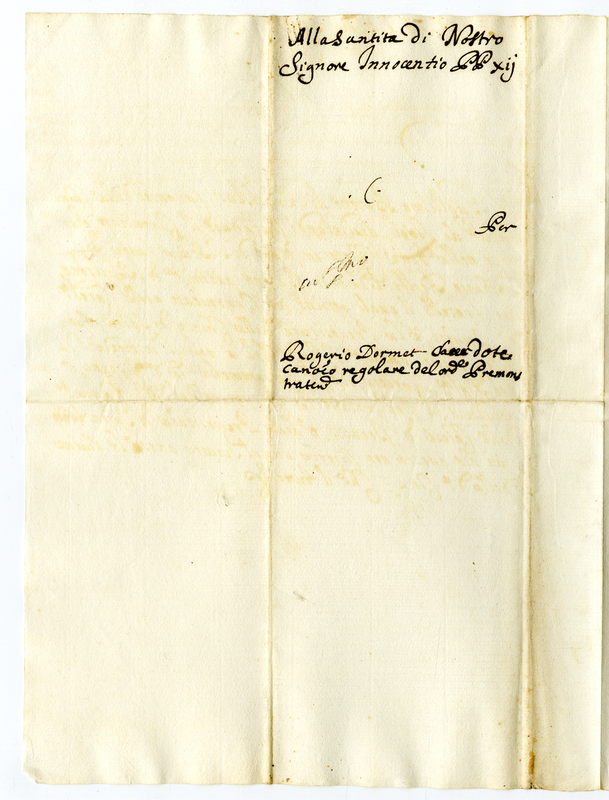 Alla Santita di Nostro
Signore Innocentio PP xij
Per
Rogerio Dormet Sacerdote
canoco regolare del ord.e Premons
traten